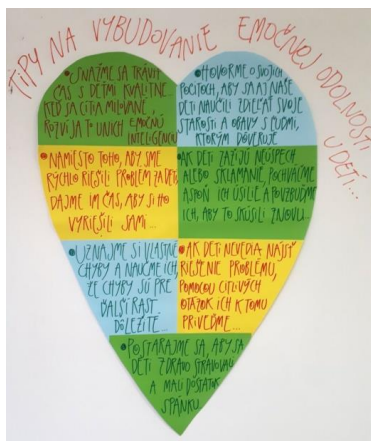 TIPY NA VYBUDOVANIE EMOČNEJ ODOLNOSTI
U DETÍ...
•SNAŽME SA TRÁVIŤ
ČAS S DEŤMI KVALITNE.
KEĎ SA CÍTIA MILOVANÉ,
ROZVÍJA TO U NICH EMOČNÚ
INTELIGENCIU
•HOVORME O SVOJICH
POCITOCH, ABY SA AJ NAŠE
DETI NAUČILI ZDIEĽAŤ SVOJE
STAROSTI A OBAVY S ĽUĎMI,
KTORÝM DÔVERUJE
•NAMIESTO TOHO, ABY SME
RÝCHLO RIEŠILI PROBLÉM ZA DETI,
DAJME IM ČAS, ABY SI HO
VYRIEŠILI SAMI...
•AK DETI ZAŽIJÚ NEÚSPECH
ALEBO SKLAMANIE, POCHVÁĽME
ASPOŇ ICH ÚSILIE A POVZBUĎME
ICH, ABY TO SKÚSILI ZNOVU...
•UZNAJME SI VLASTNÉ
CHYBY A NAUČME ICH,
ŽE CHYBY SÚ PRE
ĎALŠÍ RAST
DÔLEŽITÉ...
•AK DETI NEVEDIA NÁJSŤ
RIEŠENIE PROBLÉMU,
POMOCOU CITLIVÝCH
OTÁZOK ICH K TOMU
PRIVEĎME...
•POSTARAJME SA, ABY SA
DETI ZDRAVO STRAVOVALI
A MALI DOSTATOK
SPÁNKU